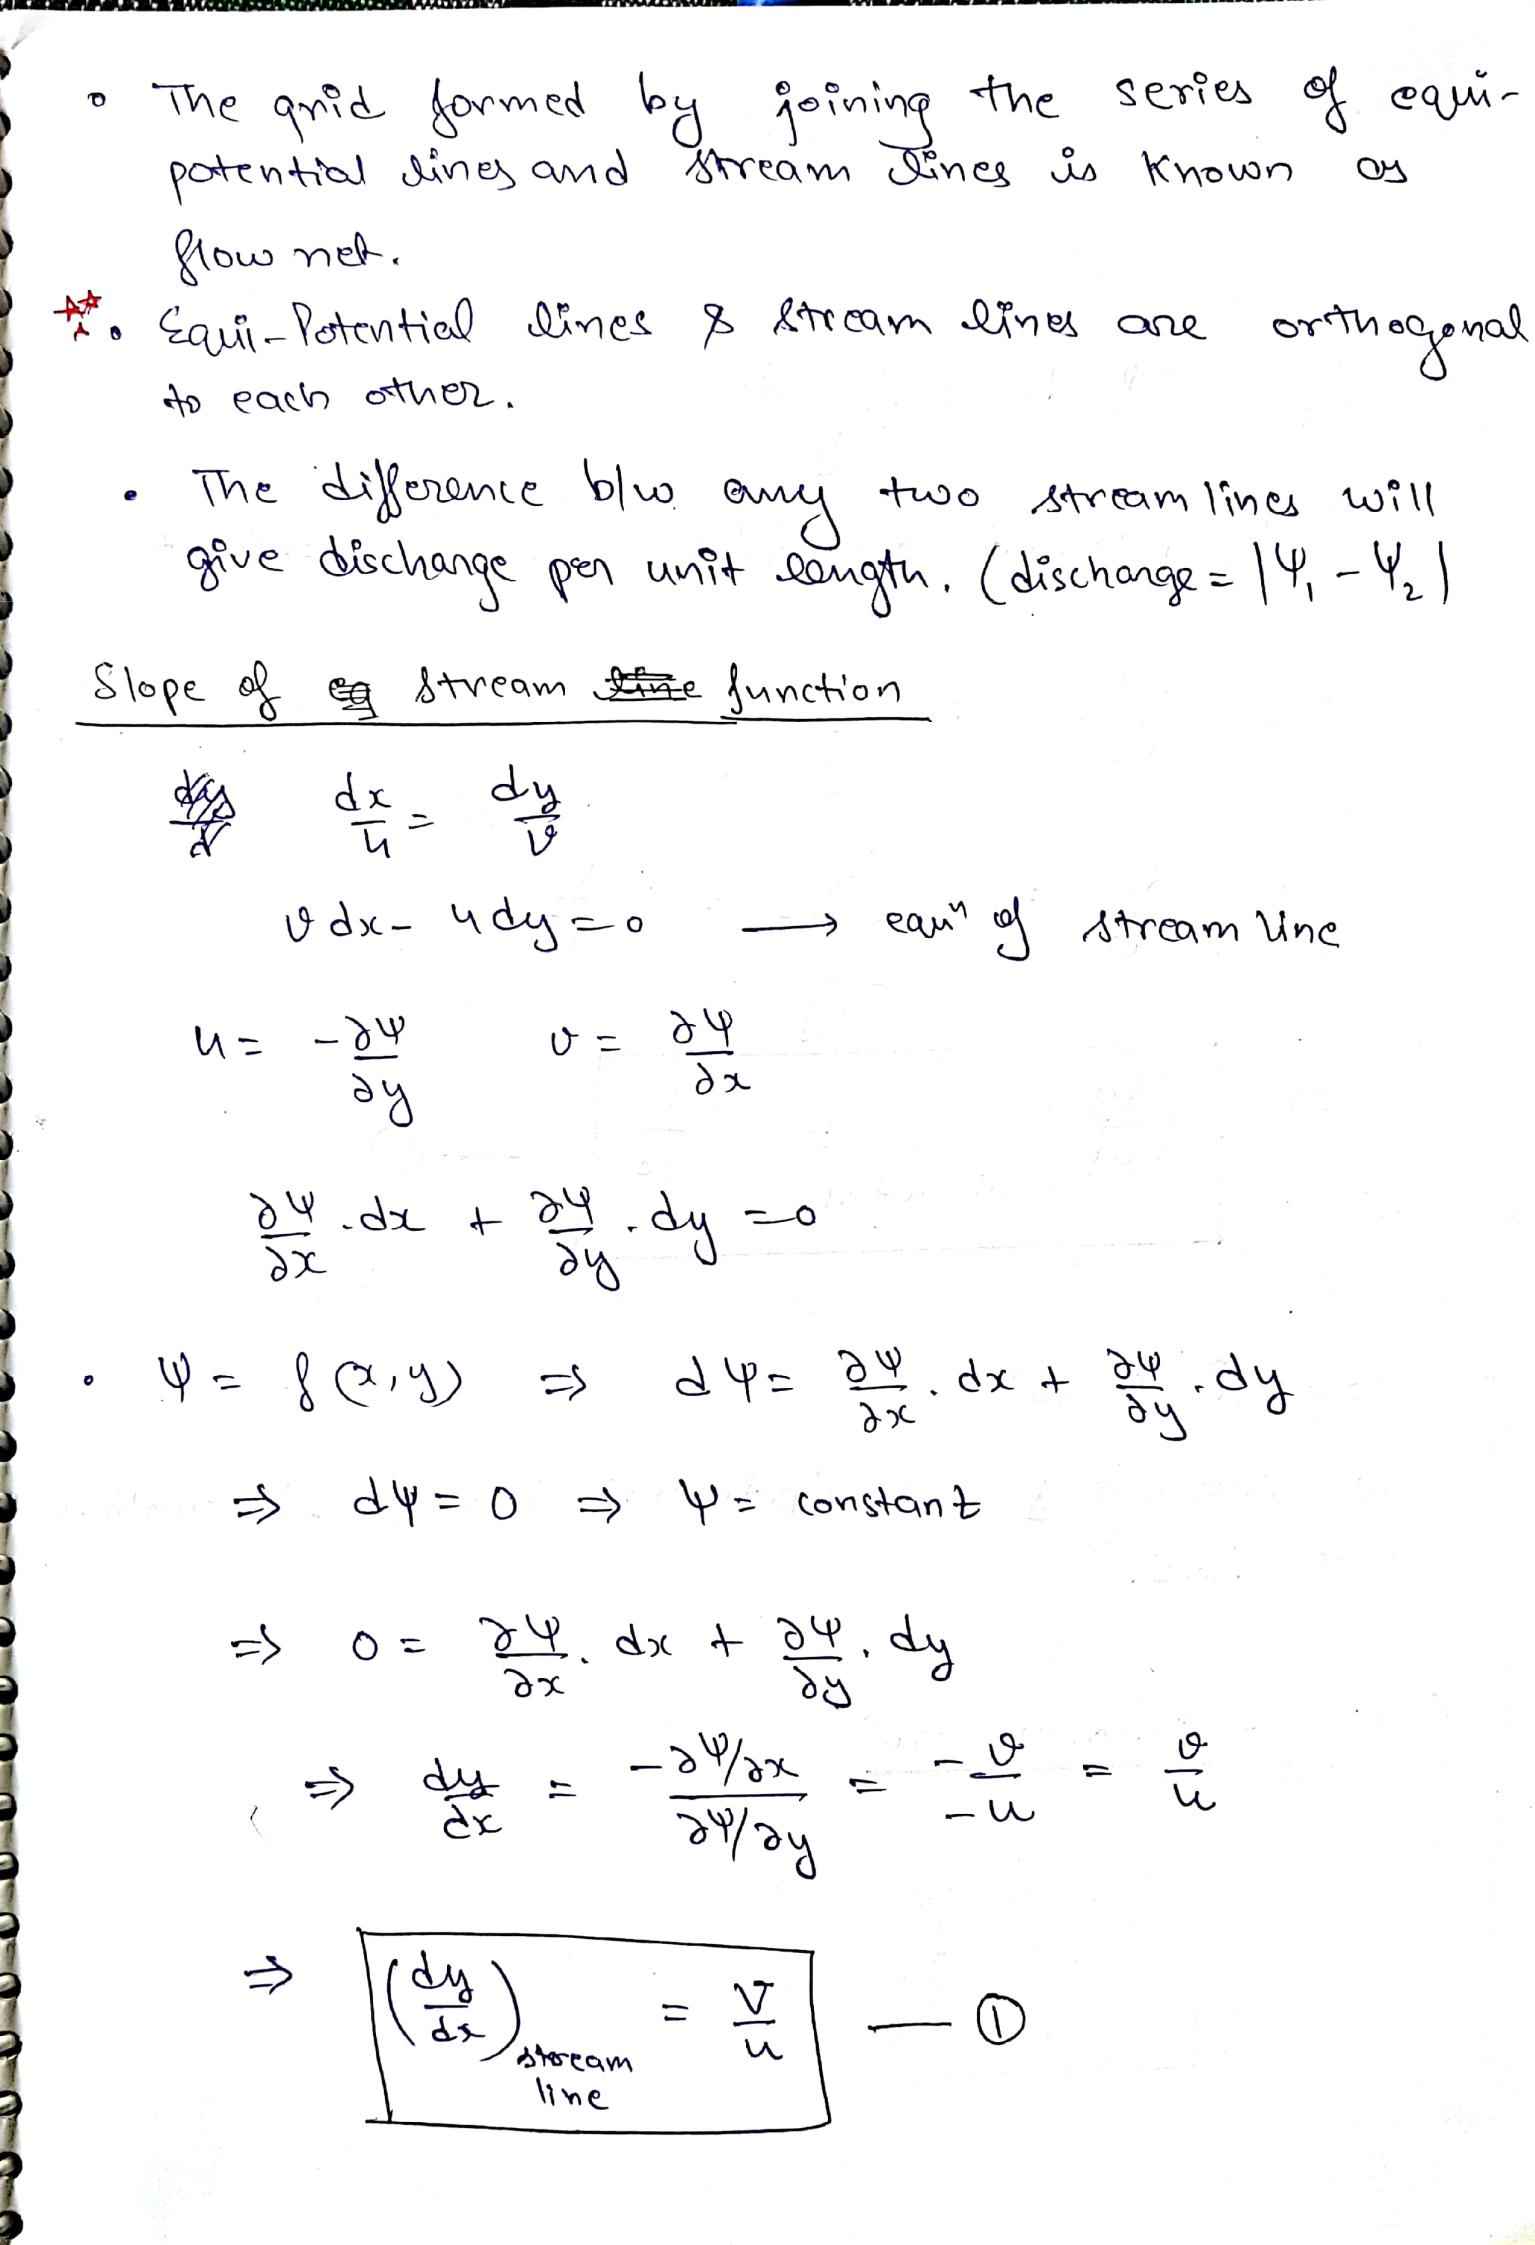 The grid formed by joining the series of equi-
potential lines and stream lines is known as
flow net.
Equi-Potential lines & stream lines are orthogonal
to each other.
The difference b/w any two stream lines will
give discharge per unit length. (discharge = |ψ₁ - ψ₂|
Slope of stream function
dx/u = dy/v
v dx - u dy = 0 → equⁿ of stream line
u = -∂ψ/∂y v = ∂ψ/∂x
∂ψ/∂x . dx + ∂ψ/∂y . dy = 0
ψ = f(x,y) ⇒ dψ = ∂ψ/∂x . dx + ∂ψ/∂y . dy
⇒ dψ = 0 ⇒ ψ = constant
⇒ 0 = ∂ψ/∂x . dx + ∂ψ/∂y . dy
⇒ dy/dx = (-∂ψ/∂x)/(∂ψ/∂y) = -v/-u = v/u
⇒ (dy/dx) stream line = v/u — ①